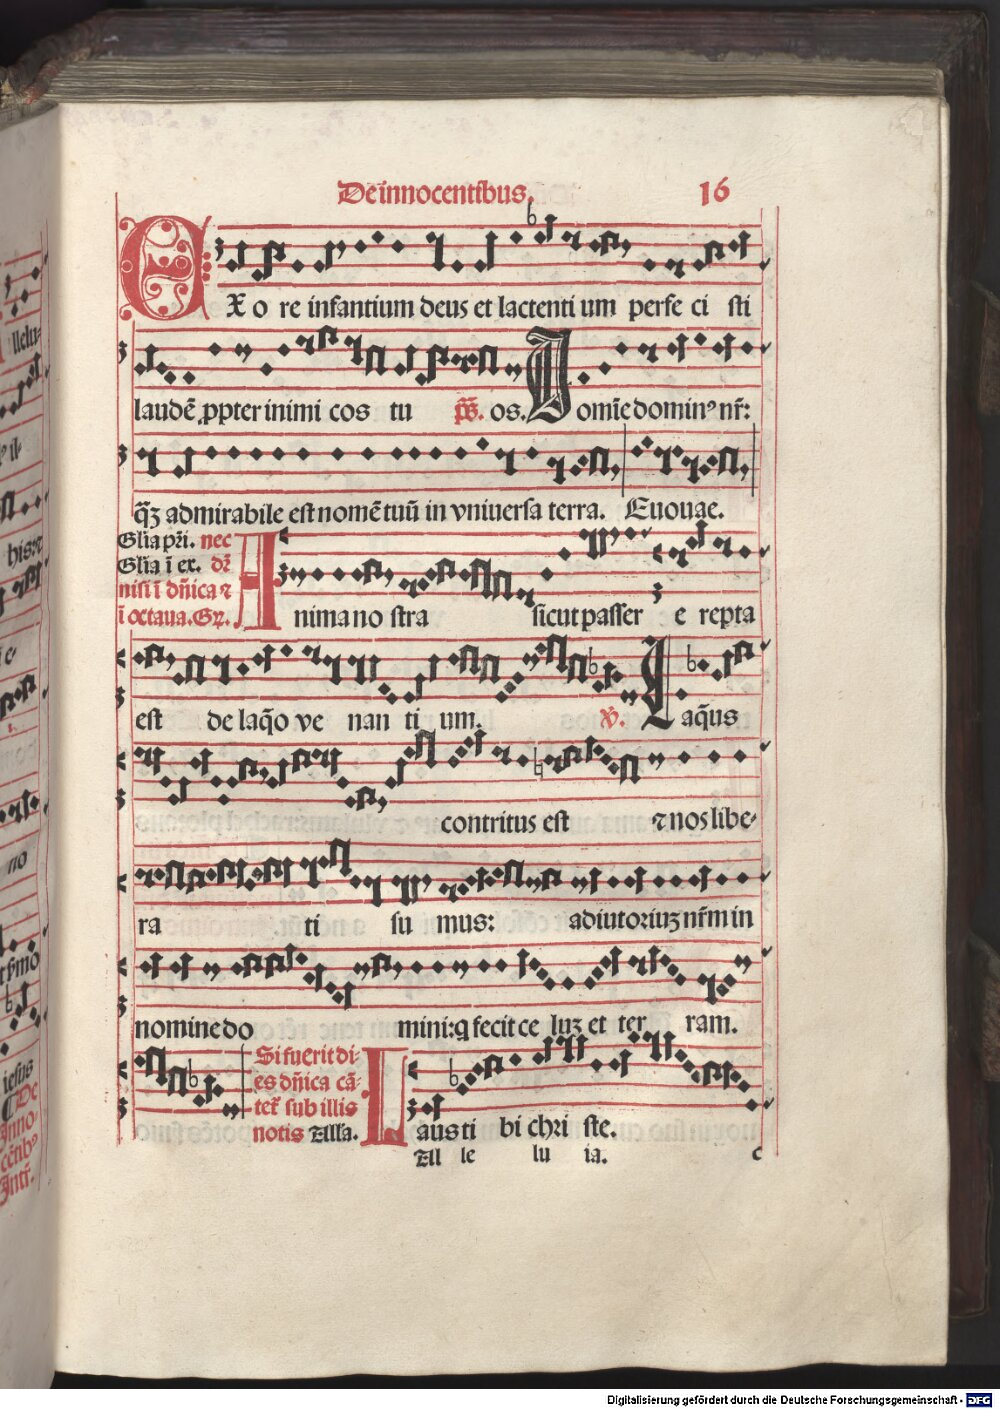 De innocentibus.
16
EX o re infantium deus et lactenti um perfe ci sti
laudē ꝓpter inimi cos tu p̄s. os. Domīe domin⁹ nr̄:
q̄ꝫ admirabile est nomē tuū in vniuersa terra. Euouae.
Gl̄ia pr̄i. nec
Gl̄ia ī ex. dr̄
nisi ī dn̄ica ⁊
ī octaua. Gr̄.
Anima no stra sicut passer e repta
est de laq̄o ve nan ti um. v̄. Laq̄us
contritus est ⁊ nos libe-
ra ti su mus: adiutoriuꝫ nr̄m in
nomine do mini: q fecit ce luꝫ et ter ram.
Si fuerit di-
es dn̄ica cā-
tet̄ sub illis
notis All'a.
Laus ti bi chri ste.
All le lu ia.
c
llelu-
his
no
iesus
De
Inno-
cētib⁹
Intr̄.
Digitalisierung gefördert durch die Deutsche Forschungsgemeinschaft - DFG